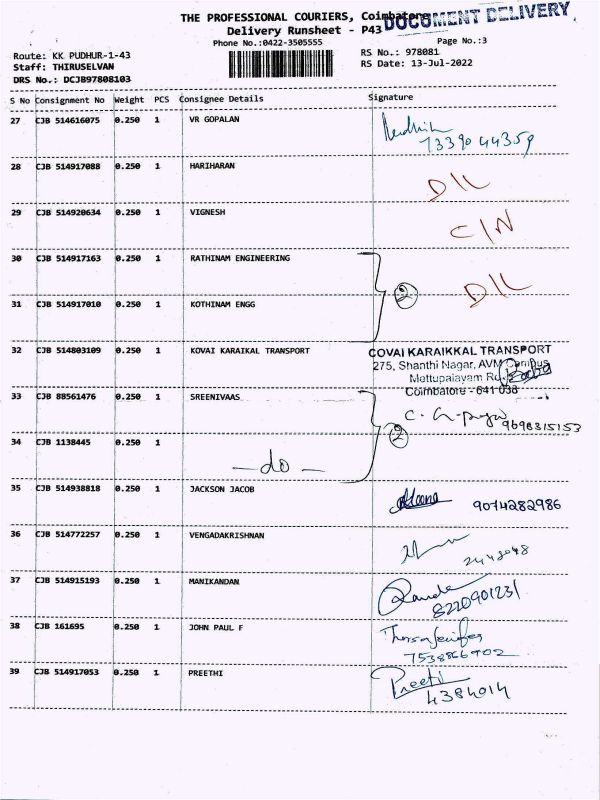 THE PROFESSIONAL COURIERS, Coimbatore
DOCUMENT DELIVERY
Delivery Runsheet - P43
Phone No.:0422-3505555
Page No.:3
Route: KK PUDHUR-1-43
RS No.: 978081
Staff: THIRUSELVAN
RS Date: 13-Jul-2022
DRS No.: DCJB97808103
S No Consignment No Weight PCS Consignee Details Signature
27 CJB 514616075 0.250 1 VR GOPALAN
7339044359
28 CJB 514917088 0.250 1 HARIHARAN
D/L
29 CJB 514920634 0.250 1 VIGNESH
C/N
30 CJB 514917163 0.250 1 RATHINAM ENGINEERING
2 D/L
31 CJB 514917010 0.250 1 KOTHINAM ENGG
32 CJB 514803109 0.250 1 KOVAI KARAIKAL TRANSPORT
COVAI KARAIKKAL TRANSPORT
275, Shanthi Nagar, AVM Campus
Mettupalayam Rd.
Coimbatore - 641 038
33 CJB 88561476 0.250 1 SREENIVAAS
2 9698815153
34 CJB 1138445 0.250 1
- do -
35 CJB 514938818 0.250 1 JACKSON JACOB
9074282986
36 CJB 514772257 0.250 1 VENGADAKRISHNAN
2448048
37 CJB 514915193 0.250 1 MANIKANDAN
8220901231
38 CJB 161695 0.250 1 JOHN PAUL F
7538866902
39 CJB 514917053 0.250 1 PREETHI
Preethi
4384014